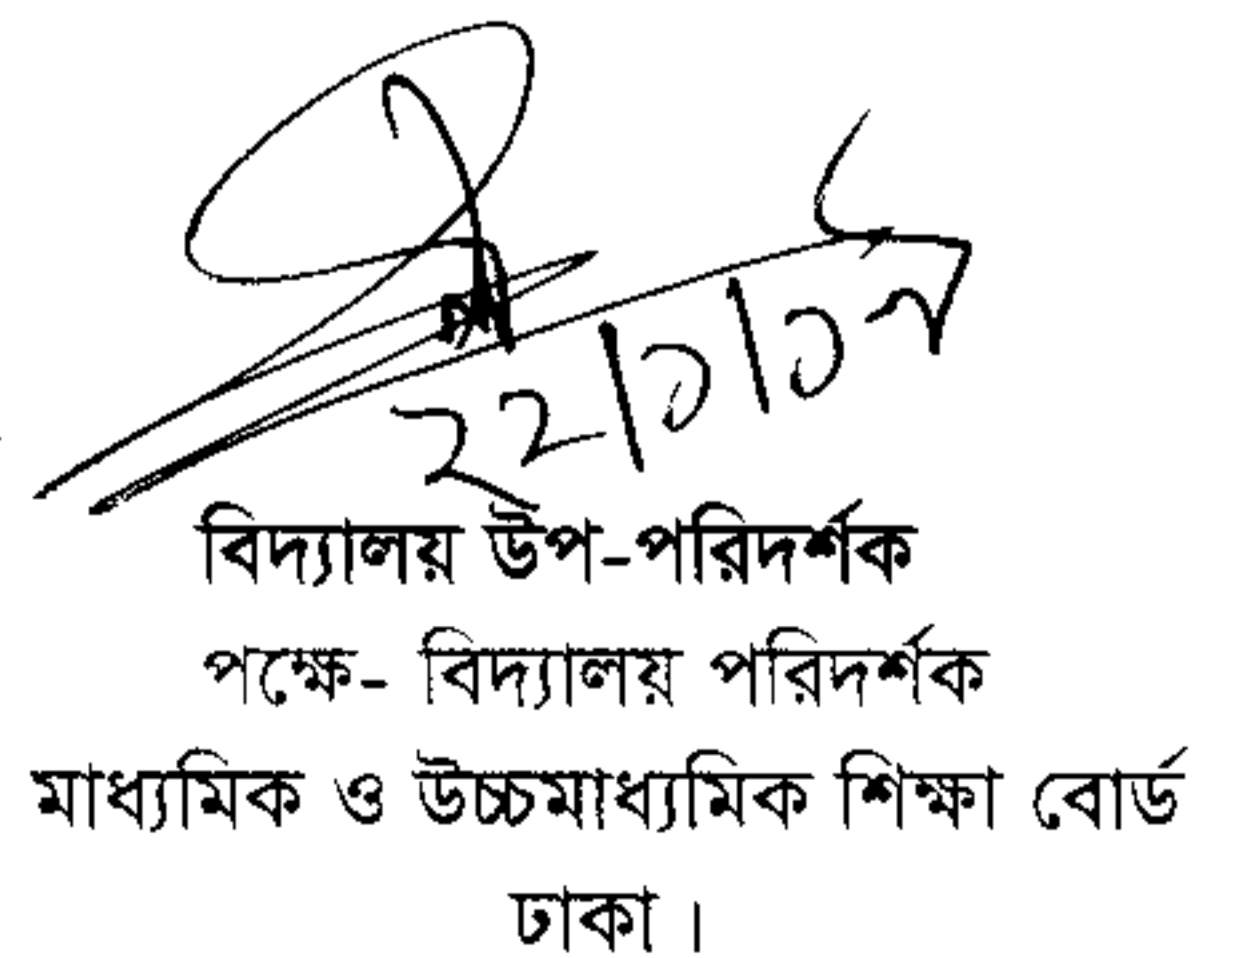 ২২/৩/০৭
বিদ্যালয় উপ-পরিদর্শক
পক্ষে- বিদ্যালয় পরিদর্শক
মাধ্যমিক ও উচ্চমাধ্যমিক শিক্ষা বোর্ড
ঢাকা।